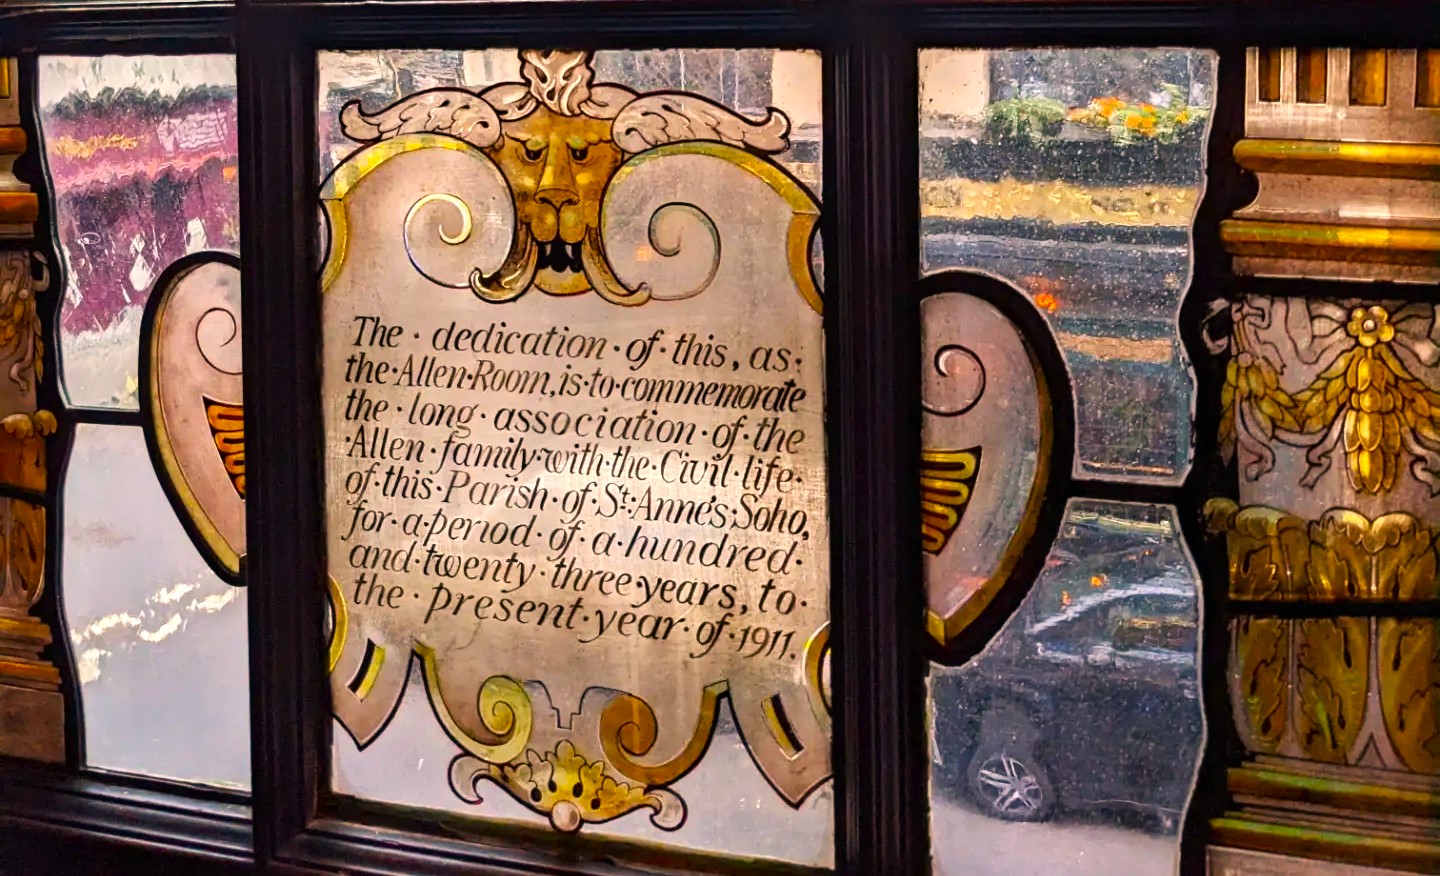 The · dedication · of · this, as ·
the · Allen · Room, is · to · commemorate
the · long · association · of · the
· Allen · family · with · the · Civil · life ·
of · this · Parish · of · St: Anne's · Soho,
for · a · period · of · a · hundred ·
and · twenty · three · years, to ·
the · present · year · of · 1911.